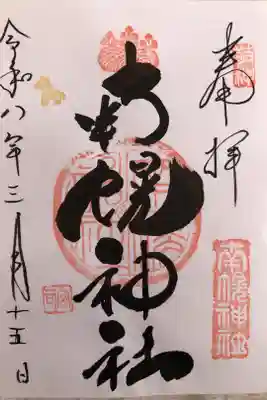 奉拝
南幌神社
南幌神社
令和八年三月十五日